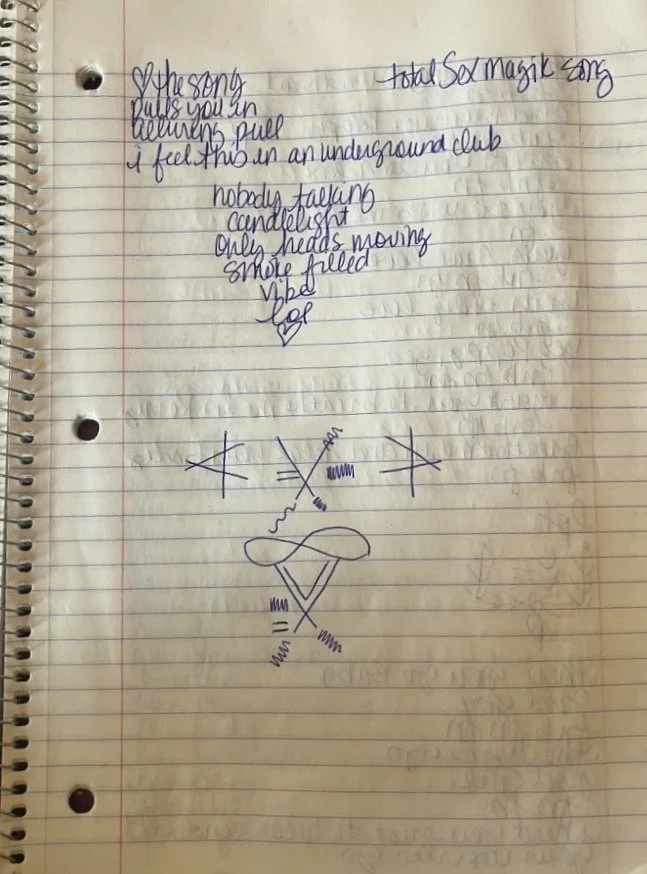 ♡ the song
total Sex magik song
Pulls you in
alluring pull
i feel this in an underground club
nobody talking
candlelight
only heads moving
smoke filled
Vibe
lol
♡